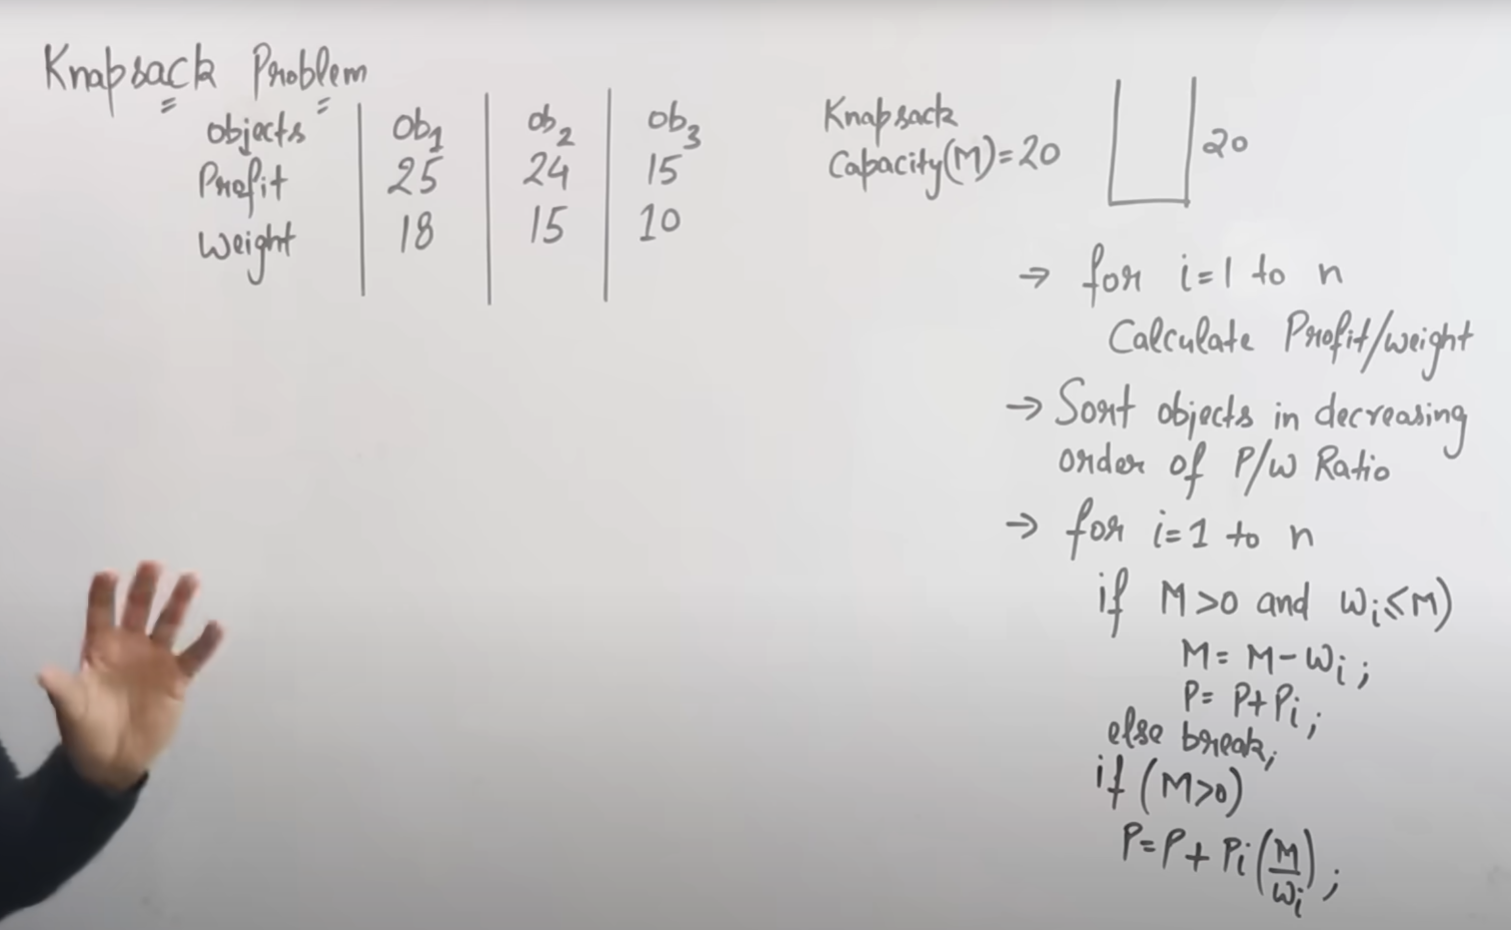 Knapsack Problem
objects ob1 ob2 ob3
Profit 25 24 15
Weight 18 15 10
Knapsack
Capacity(M)=20
20
→ for i=1 to n
Calculate Profit/weight
→ Sort objects in decreasing
order of P/W Ratio
→ for i=1 to n
if M>0 and Wi≤M)
M= M-Wi;
P= P+Pi;
else break;
if (M>0)
P=P+Pi(M/Wi);